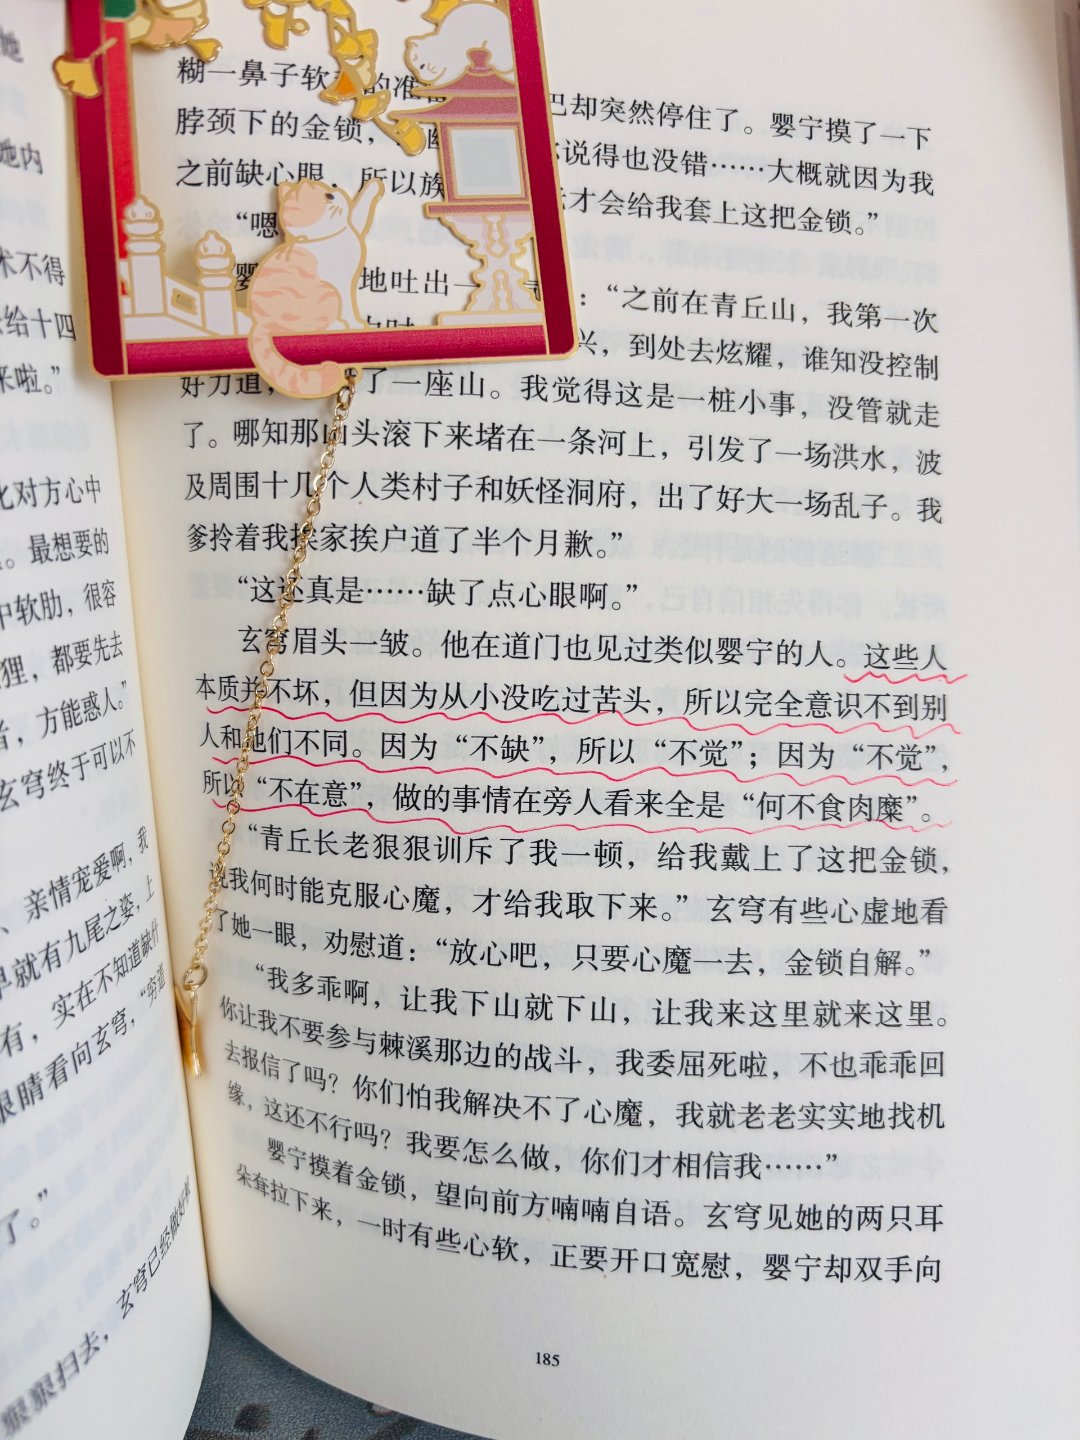 她
她内
术不得
给十四
来啦。”
比对方心中
。最想要的
中软肋，很容
狸，都要先去
者，方能惑人。”
玄穹终于可以不
、亲情宠爱啊，我
早就有九尾之姿，上
有，实在不知道缺什
眼睛看向玄穹，“穷道
了。”
玄穹已经做好
狠狠扫去，
糊一鼻子软 的准 巴却突然停住了。婴宁摸了一下
脖颈下的金锁， 说得也没错……大概就因为我
之前缺心眼，所以族 才会给我套上这把金锁。”
“嗯
婴 地吐出一 ：“之前在青丘山，我第一次
兴，到处去炫耀，谁知没控制
好力道， 了一座山。我觉得这是一桩小事，没管就走
了。哪知那山头滚下来堵在一条河上，引发了一场洪水，波
及周围十几个人类村子和妖怪洞府，出了好大一场乱子。我
爹拎着我挨家挨户道了半个月歉。”
“这还真是……缺了点心眼啊。”
玄穹眉头一皱。他在道门也见过类似婴宁的人。这些人
本质并不坏，但因为从小没吃过苦头，所以完全意识不到别
人和他们不同。因为“不缺”，所以“不觉”；因为“不觉”，
所以“不在意”，做的事情在旁人看来全是“何不食肉糜”。
“青丘长老狠狠训斥了我一顿，给我戴上了这把金锁，
说我何时能克服心魔，才给我取下来。”玄穹有些心虚地看
了她一眼，劝慰道：“放心吧，只要心魔一去，金锁自解。”
“我多乖啊，让我下山就下山，让我来这里就来这里。
你让我不要参与棘溪那边的战斗，我委屈死啦，不也乖乖回
去报信了吗？你们怕我解决不了心魔，我就老老实实地找机
缘，这还不行吗？我要怎么做，你们才相信我……”
婴宁摸着金锁，望向前方喃喃自语。玄穹见她的两只耳
朵耷拉下来，一时有些心软，正要开口宽慰，婴宁却双手向
185